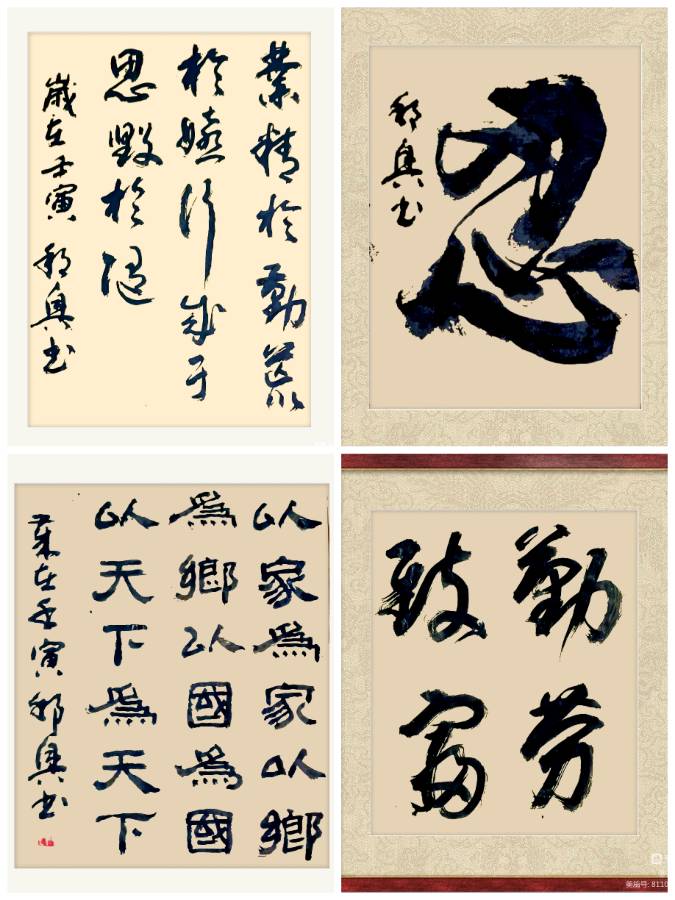 業精於勤荒
於嬉行成于
思毀於随
歲在壬寅 书
忍
书
以家為家以鄉
為鄉以國為國
以天下為天下
歲在壬寅 书
勤劳
致富
美篇号: 8110